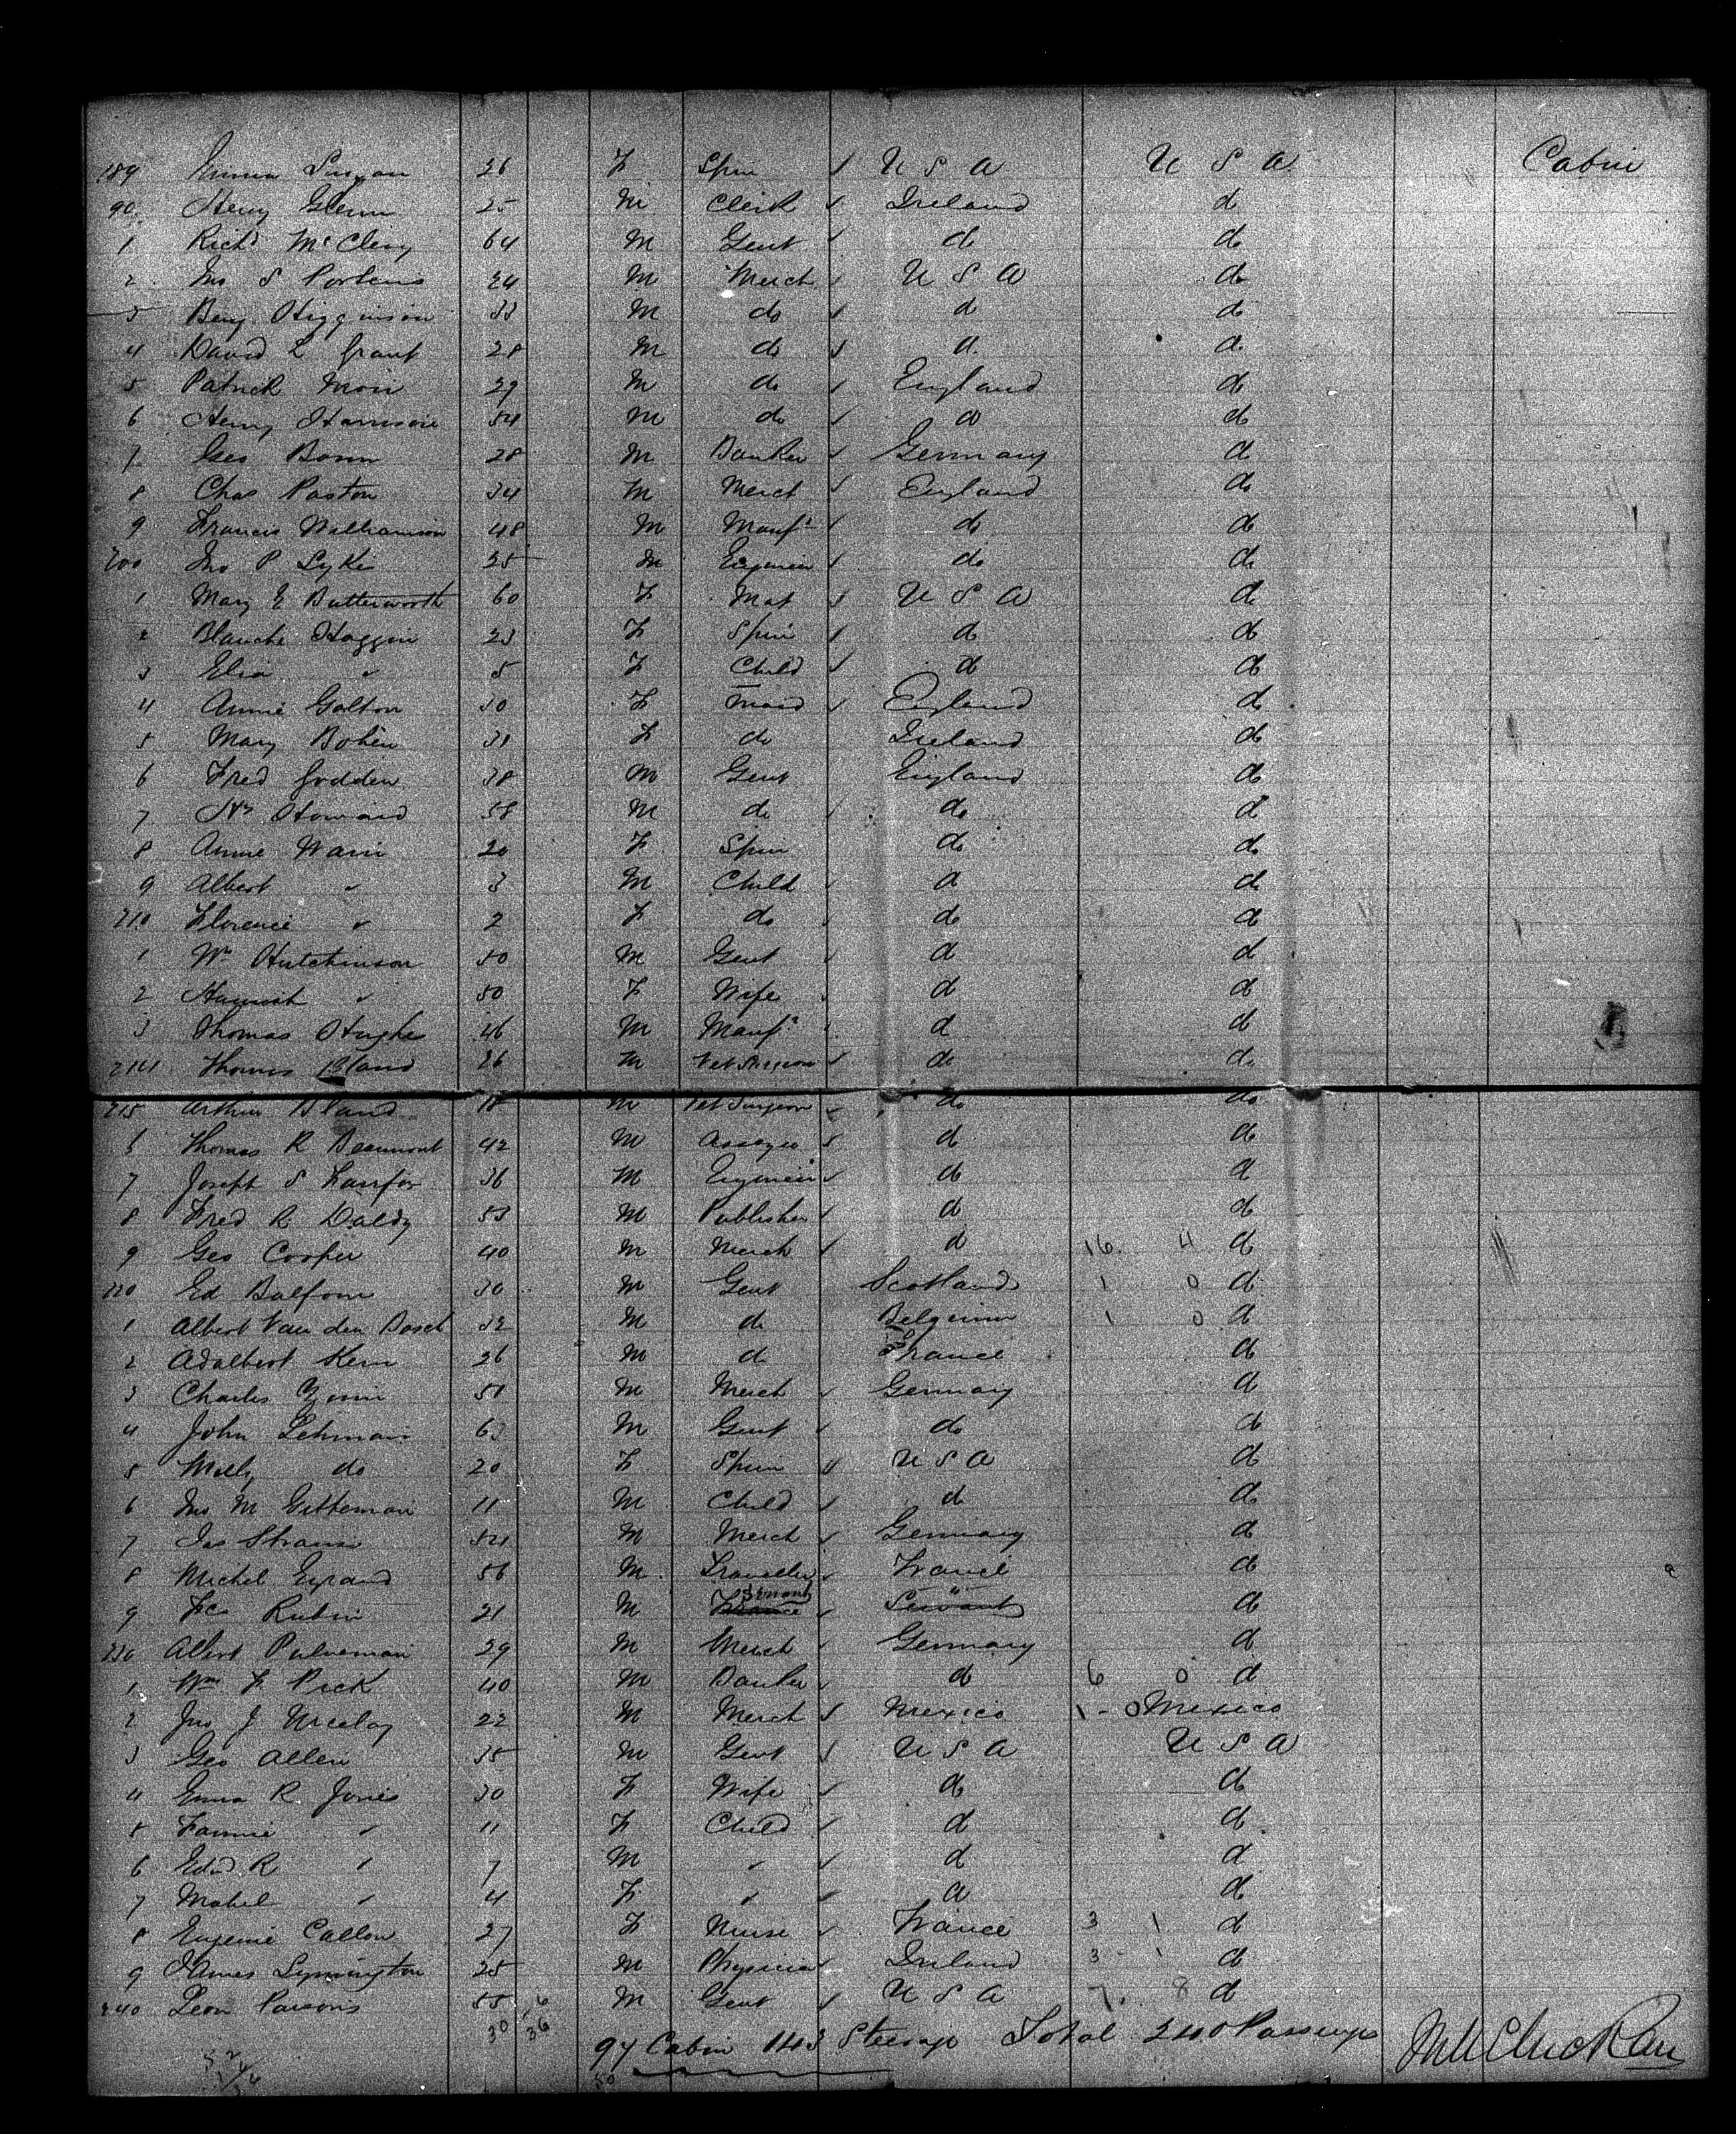 189 Emma 26 F Spin U S A U S A Cabin
90 Henry Glenn 25 M Clerk Ireland do
1 Richd McCleny 64 M Gent do do
2 Jno S Porteus 24 M Merch U S A do
3 Benj Higginson 33 M do d do
4 David L Grant 28 M do d. do
5 Patrick Moir 29 M do England do
6 Henry Harrison 54 M do do do
7 Geo Bonn 28 M Banker Germany do
8 Chas Paston 34 M Merch England do
9 Francis Williamson 48 M Manfr do do
200 Jno P Syke 25 M Engineer do do
1 Mary E Butterworth 60 F Mat U S A do
2 Blanche Haggin 23 F Spin do do
3 Eliza " 5 F Child do do
4 Annie Galton 30 F Maid England do
5 Mary Bohen 31 F do Ireland do
6 Fred Godden 38 M Gent England do
7 Hy Howard 58 M do do d
8 Annie 20 F Spin do do
9 Albert " 3 M Child d do
210 Florence " 2 F do do do
1 Wm Hutchinson 50 M Gent d do
2 Hannah " 50 F Wife d d
3 Thomas Hughes 46 M Manfr d do
214 Thomas Bland 26 M Vet Surgeon do do
215 Arthur Bland 18 M Vet Surgeon do do
6 Thomas R Beaumont 42 M Assayer do do
7 Joseph S 36 M Engineer do d
8 Fred R Daldy 53 M Publisher d do
9 Geo Cooper 40 M Merch d 16. 4 do
220 Ed Balfour 30 M Gent Scotland 1 0 d
1 Albert Van den Bosch 32 M do Belgium 1 0 d
2 Adalbert Kern 26 M do France do
3 Charles 50 M Merch Germany do
4 John Lehman 63 M Gent do do
5 Milly do 20 F Spin U S A do
6 Jno M Gitteman 11 M Child do do
7 Jas Strauss 54 M Merch Germany do
8 Michel Eyraud 56 M Traveller France do
9 Fcs Rubin 21 M Servant " do
230 Albert Pulverman 29 M Merch Germany d
1 Wm F Pick 40 M Banker do 6 0 d
2 Jno J 22 M Merch Mexico 1 - 0 Mexico
3 Geo Allen 35 M Gent U S A U S A
4 Emma R Jones 30 F Wife do do
5 Fannie " 11 F Child d do
6 Edwd R " 7 M " d d
7 Mabel " 4 F " d do
8 Eugenie Callow 27 F Nurse France 3 1 d
9 James Symington 25 M Physician Ireland 3 1 do
240 Leon Parsons 55 M Gent U S A 7. 8 d
97 Cabin 143 Steerage Total 240 Passengs